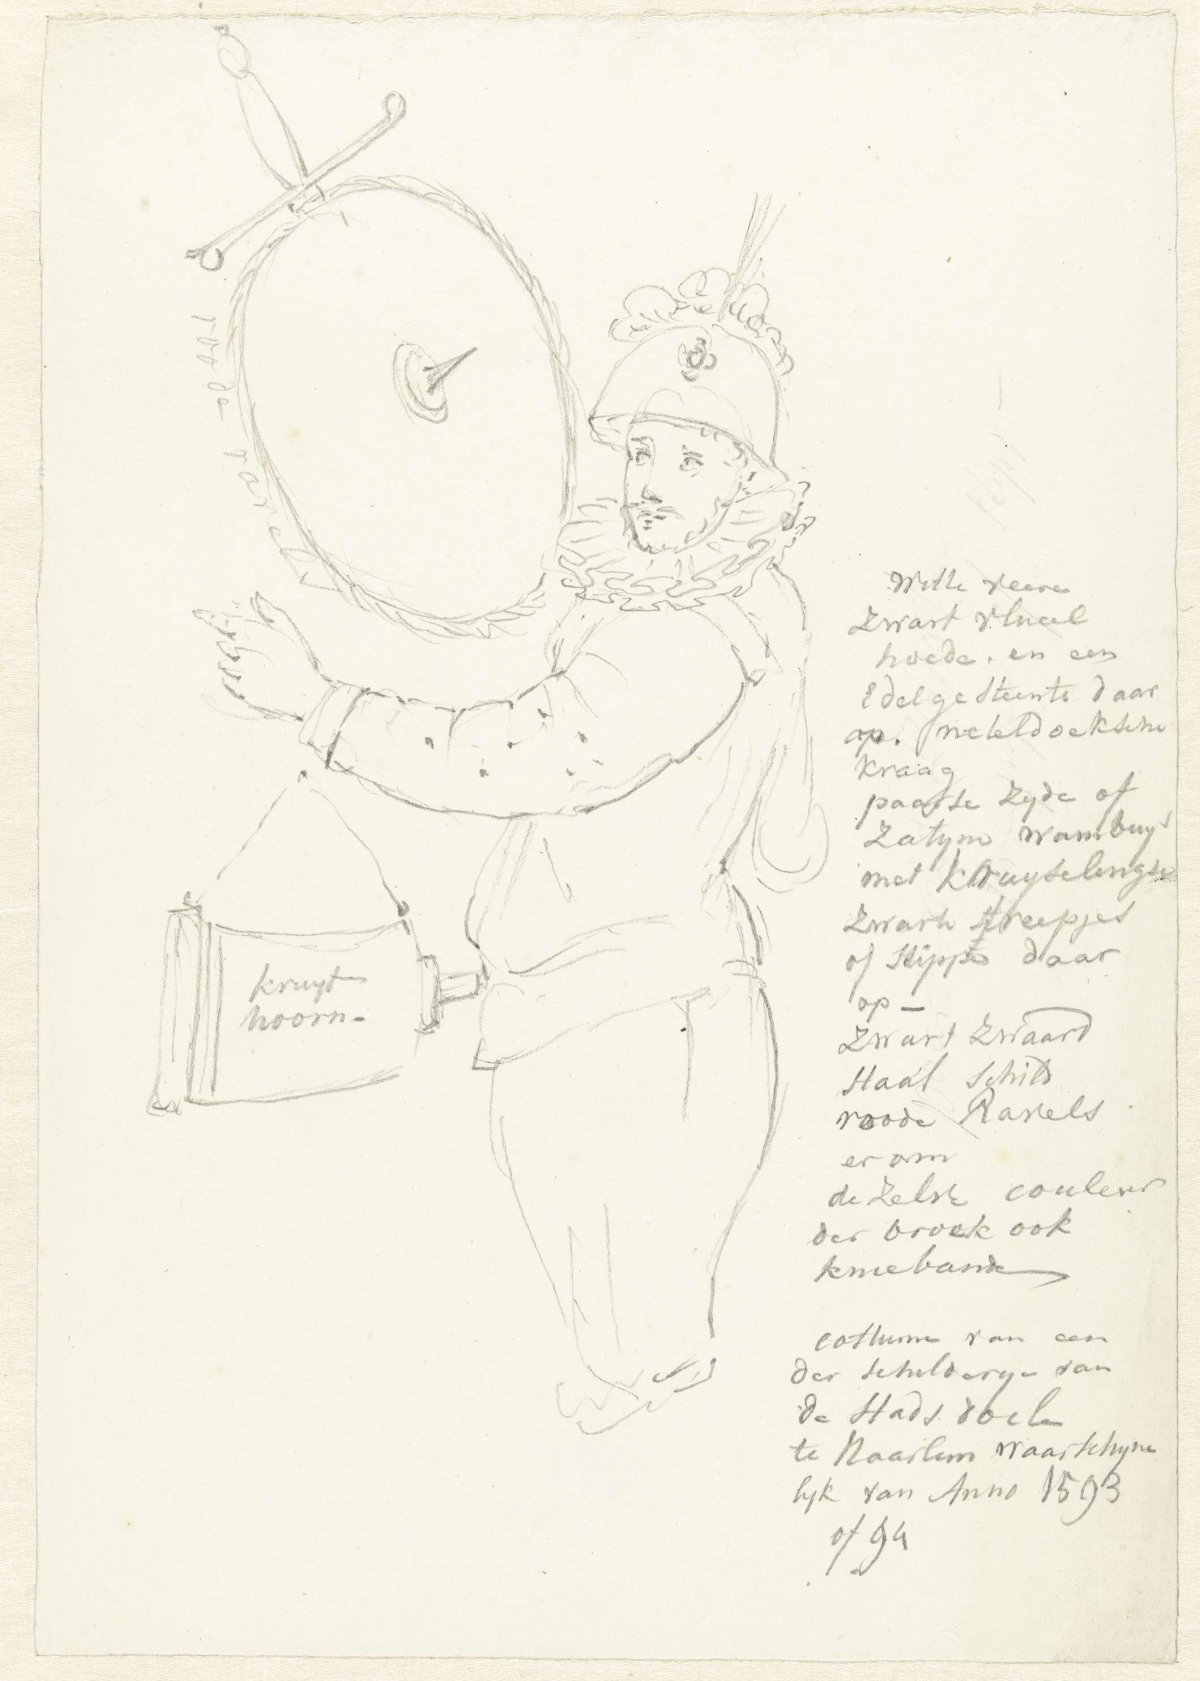 roode ravels
kruyt
hoorn -
Witte veere
Zwart vlueel
hoede. en een
Edelgesteente daar
op. neteldoeksche
kraag
paarse Zyde of
Zatyne wambuys
met kruyselingse
Zwarte streepjes
of stippe daar
op -
Zwart Zwaard
Staal schild
roode Ravels
er om
de Zelve couleur
der broek ook
kniebande
costume van een
der schilderye van
de Stads doele
te Haarlem waarschyne
lyk van Anno 1593
of 94